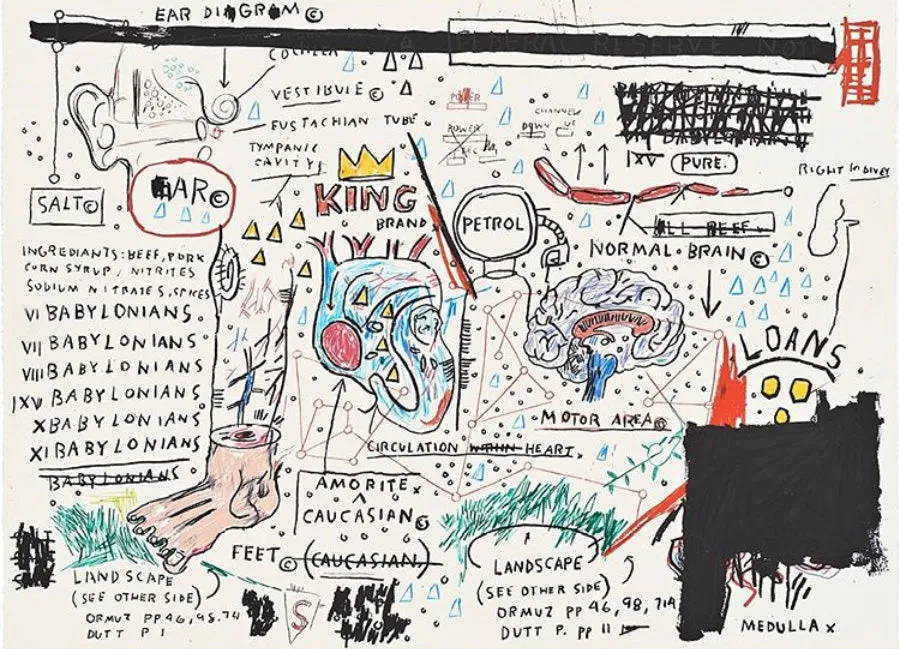 EAR DIAGRAM ©
FEDERAL RESERVE NOTE
COCHLEA
VESTIBULE ©
EUSTACHIAN TUBE
TYMPANIC
CAVITY
POWER
POWER
CHANNEL
DOWN
IXV
PURE.
RIGHT KIDNEY
SALT©
EAR©
KING
BRAND
PETROL
ALL BEEF
NORMAL BRAIN ©
INGREDIANTS: BEEF, PORK
CORN SYRUP, NITRITES
SODIUM NITRATES, SPICES
VI BABYLONIANS
VII BABYLONIANS
VIII BABYLONIANS
IXV BABYLONIANS
X BABYLONIANS
XI BABYLONIANS
BABYLONIANS
LOANS
MOTOR AREA©
CIRCULATION WITHIN HEART.
AMORITE
CAUCASIAN ©
FEET © (CAUCASIAN.)
LANDSCAPE
(SEE OTHER SIDE)
ORMUZ PP 46, 98, 74
DUTT P 1
S
LANDSCAPE
(SEE OTHER SIDE)
ORMUZ PP 46, 98, 714
DUTT P. PP 11
MEDULLA X